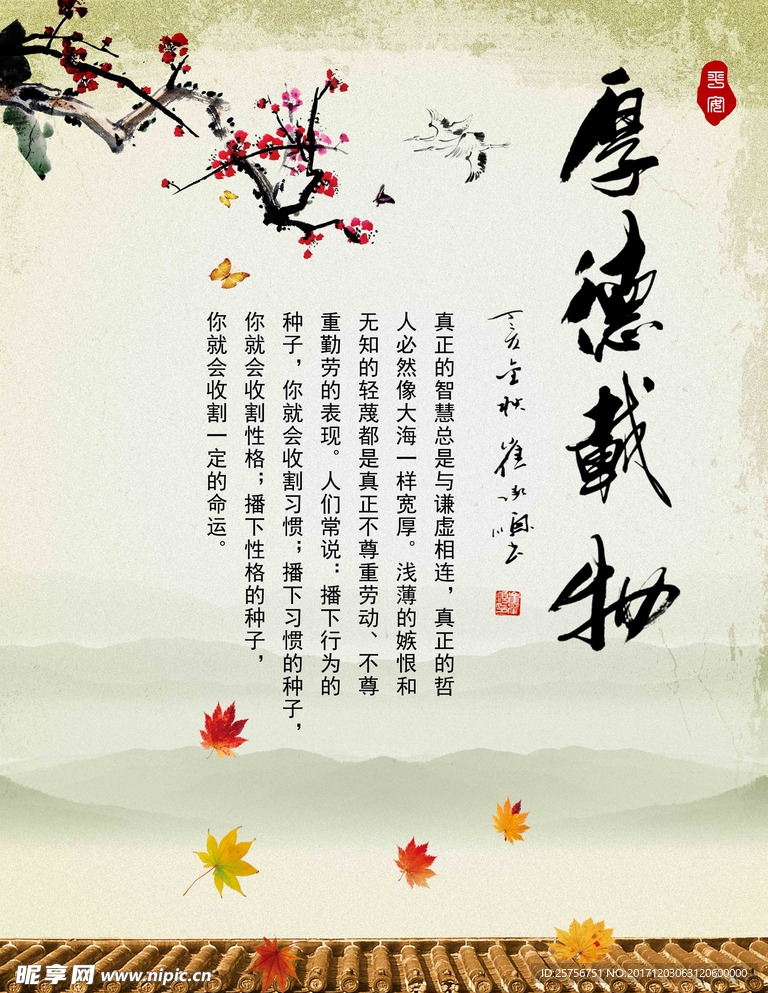 平安
厚德载物
丁亥金秋
真正的智慧总是与谦虚相连，真正的哲
人必然像大海一样宽厚。浅薄的嫉恨和
无知的轻蔑都是真正不尊重劳动、不尊
重勤劳的表现。人们常说：播下行为的
种子，你就会收割习惯；播下习惯的种子，
你就会收割性格；播下性格的种子，
你就会收割一定的命运。
昵享网 www.nipic.cn
ID:25756751 NO:20171203063120600000